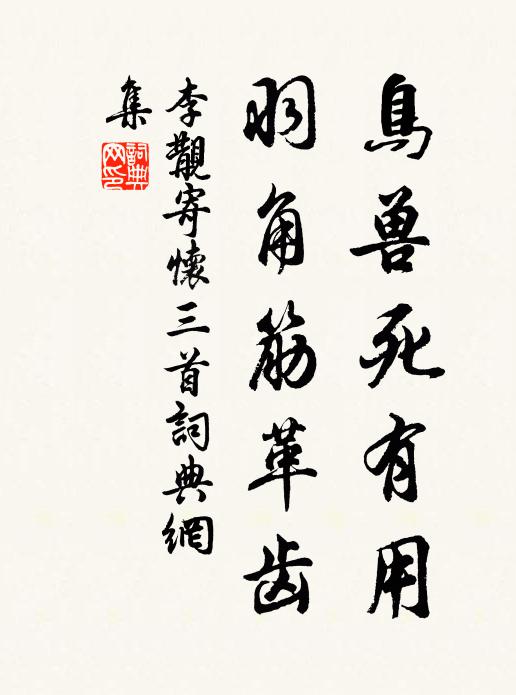 鳥兽死有用
羽角筋革齿
李覯寄懷三首詞典網
集
詞典
网印